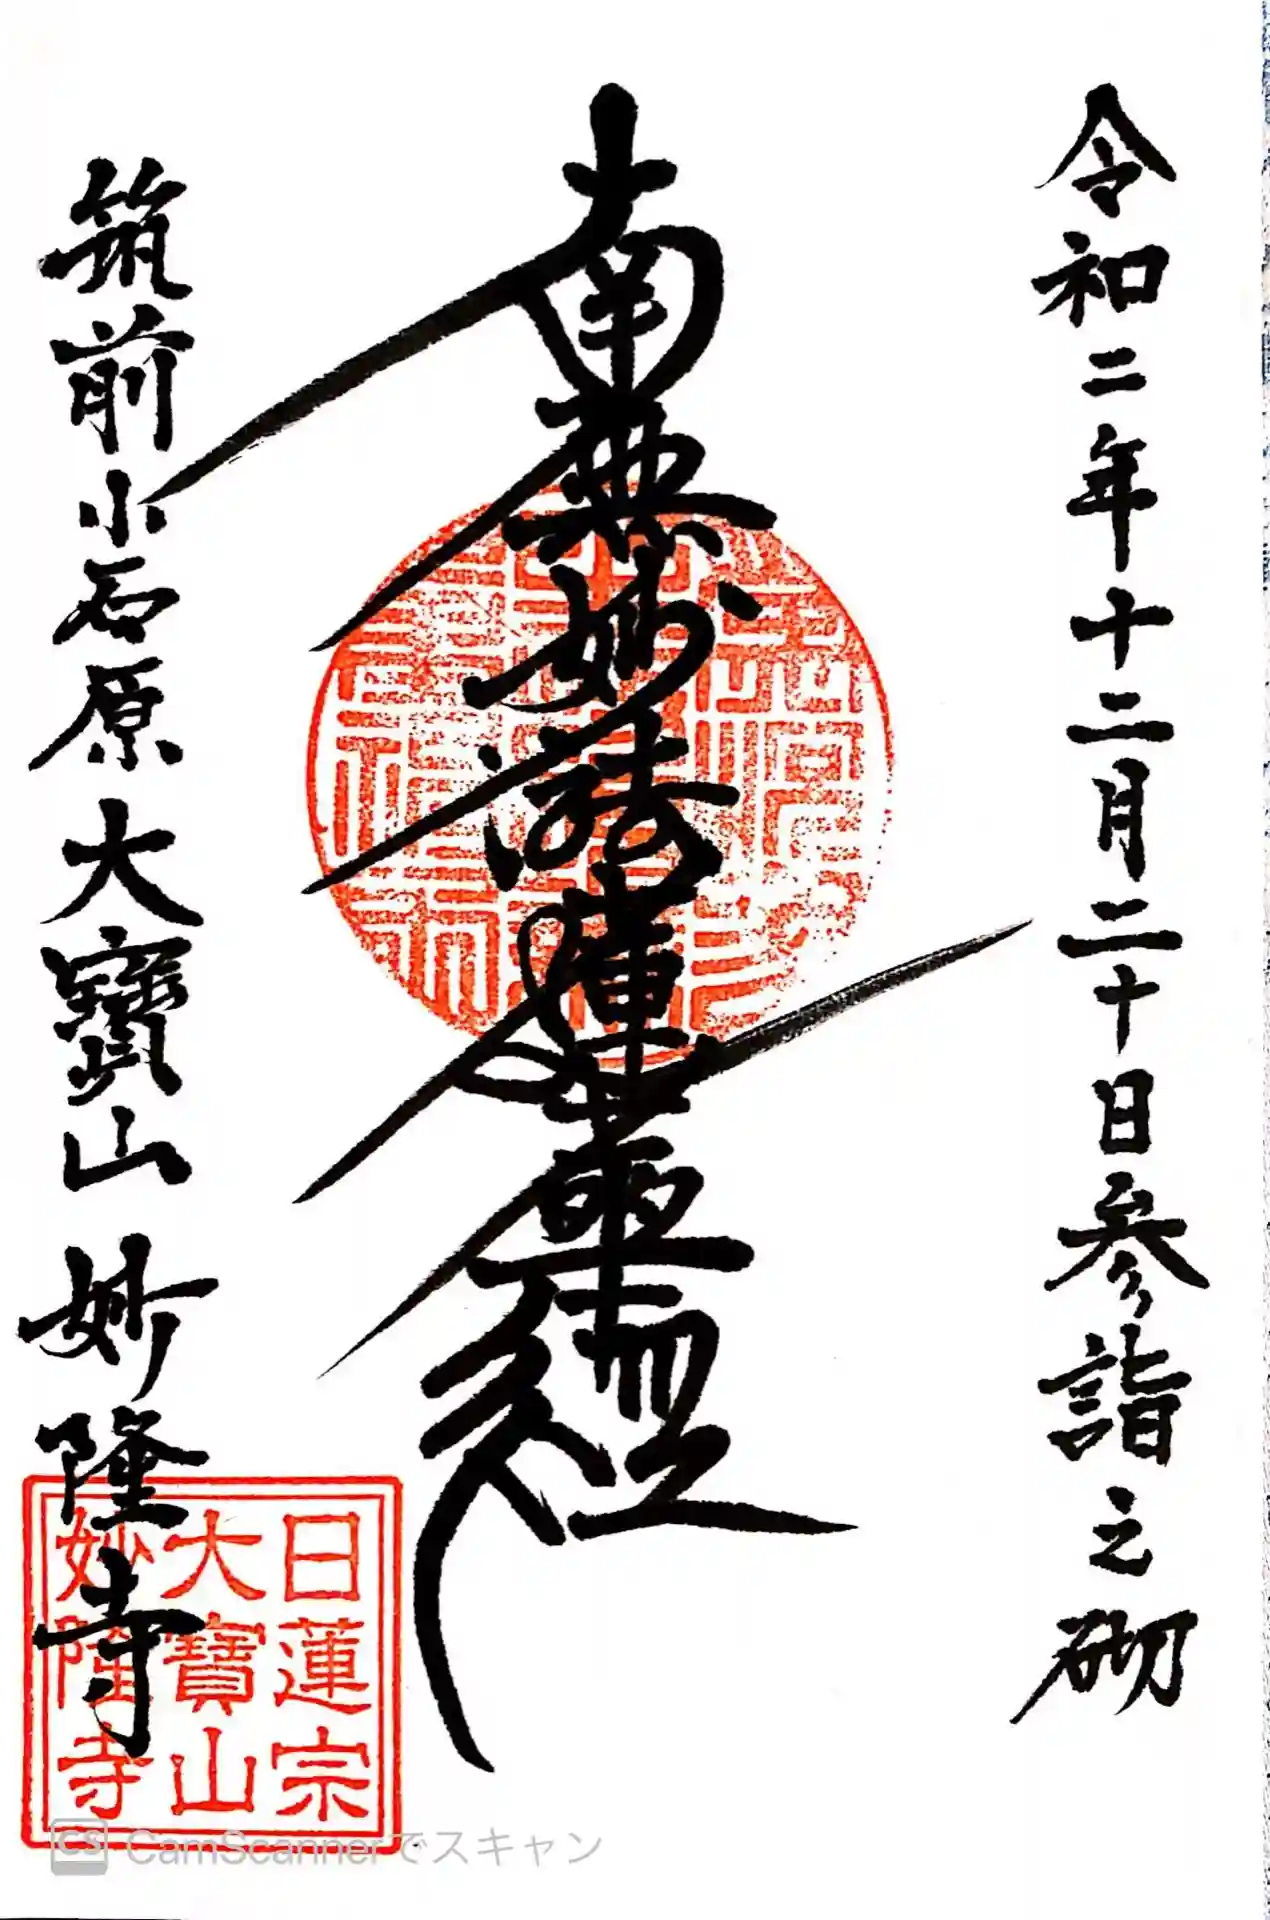 令和二年十二月二十日参詣之砌
南無妙法蓮華経
筑前小石原大寶山妙隆寺
日蓮宗
大寶山
妙隆寺
CS CamScannerでスキャン